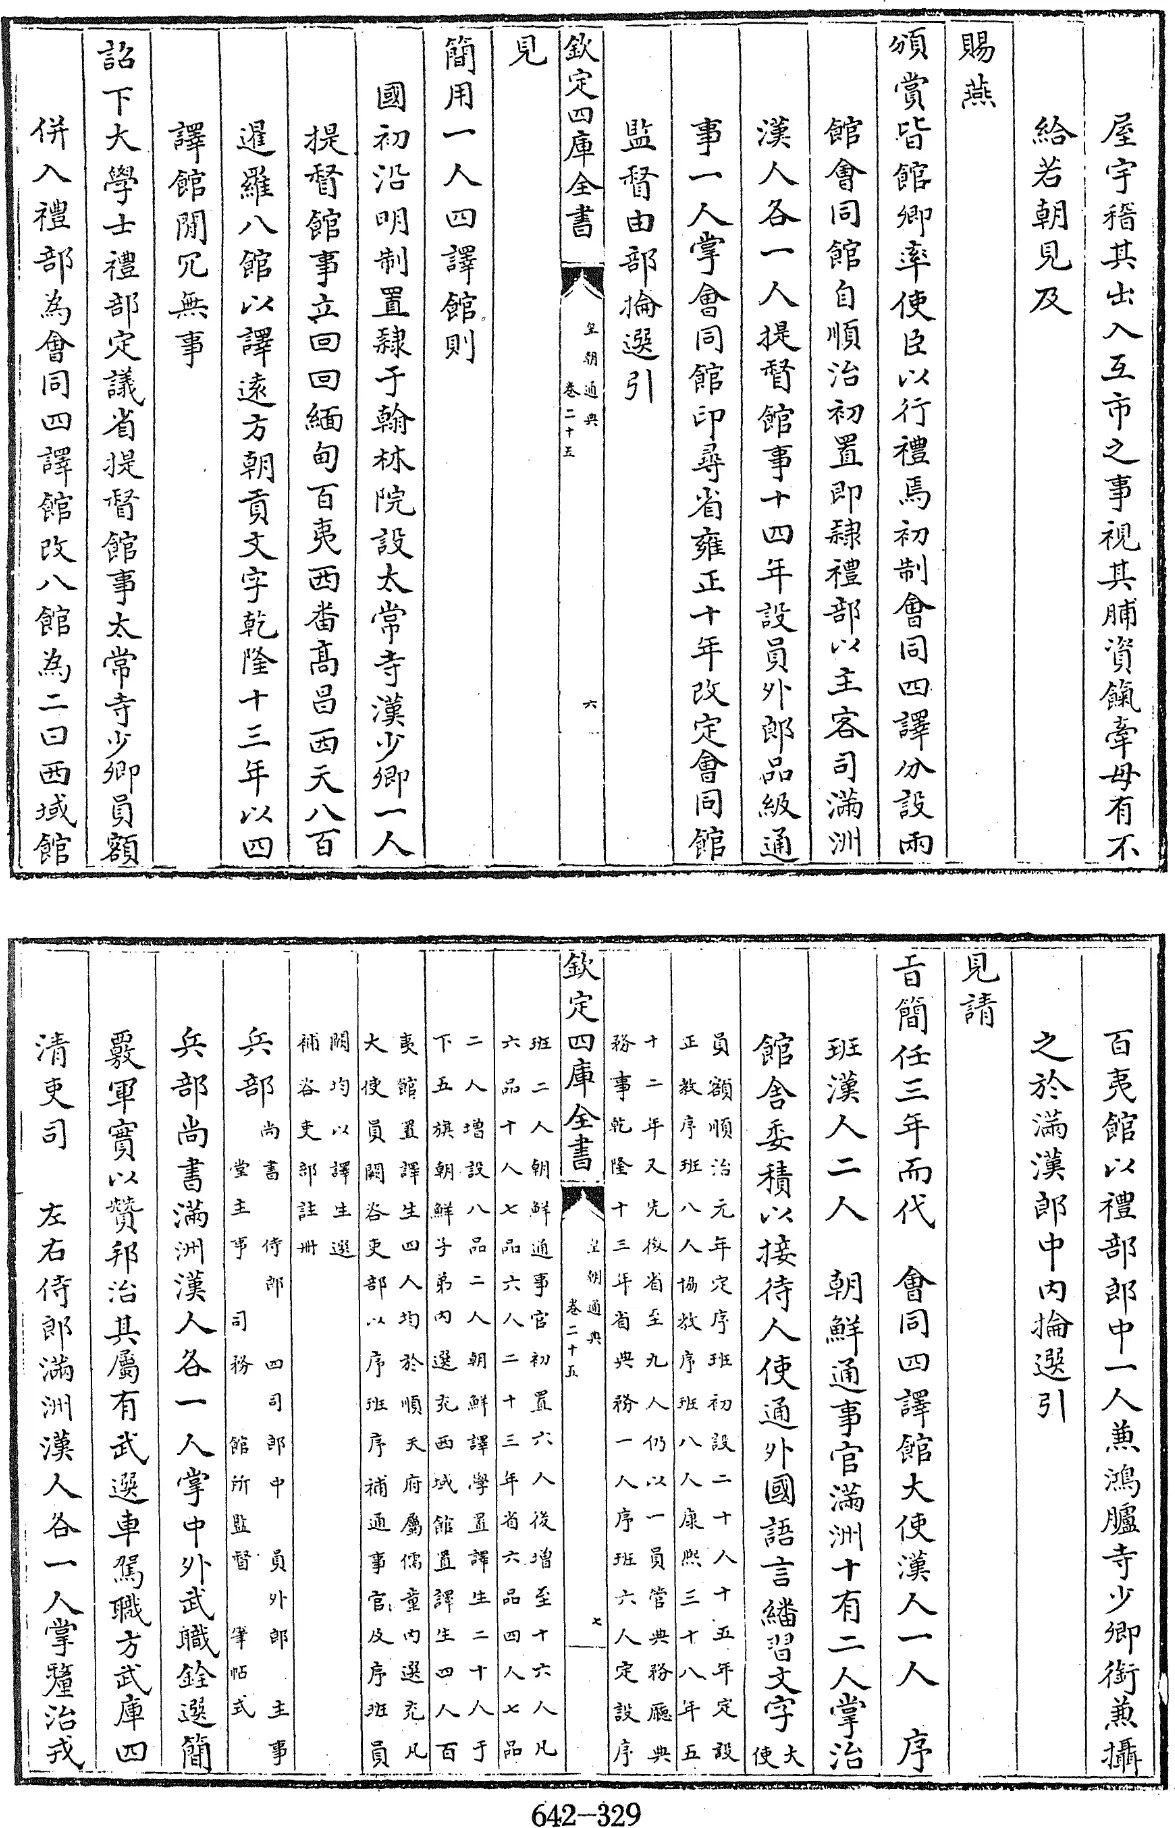 屋宇稽其出入互市之事視其脯資餼牽毋有不
給若朝見及
賜燕
頒賞皆館卿率使臣以行禮焉初制會同四譯分設兩
館會同館自順治初置即隸禮部以主客司滿洲
漢人各一人提督館事十四年設員外郎品級通
事一人掌會同館印尋省雍正十年改定會同館
監督由部掄選引
欽定四庫全書
皇朝通典
卷二十五
六
見
簡用一人四譯館則
國初沿明制置隸于翰林院設太常寺漢少卿一人
提督館事立回回緬甸百夷西番高昌西天八百
暹羅八館以譯遠方朝貢文字乾隆十三年以四
譯館閒冗無事
詔下大學士禮部定議省提督館事太常寺少卿員額
併入禮部為會同四譯館改八館為二曰西域館
百夷館以禮部郎中一人兼鴻臚寺少卿銜兼攝
之於滿漢郎中內掄選引
見請
旨簡任三年而代 會同四譯館大使漢人一人 序
班漢人二人 朝鮮通事官滿洲十有二人掌治
館舍委積以接待人使通外國語言繙習文字
大
使
員額順治元年定序班初設二十人十五年定設
正教序班八人協教序班八人康熙三十八年五
十二年又先後省至九人仍以一員管典務廳典
務事乾隆十三年省典務一人序班六人定設序
欽定四庫全書
皇朝通典
卷二十五
七
班二人朝鮮通事官初置六人後增至十六人凡
六品十人七品六人二十三年省六品四人七品
二人增設八品二人朝鮮譯學置譯生二十人于
下五旗朝鮮子弟內選充西域館置譯生四人百
夷館置譯生四人均於順天府屬儒童內選充凡
大使員闕咨吏部以序班序補通事官及序班員
闕均以譯生選
補咨吏部註冊
兵部
尚書 侍郎 四司郎中 員外郎 主事
堂主事 司務 館所監督 筆帖式
兵部尚書滿洲漢人各一人掌中外武職銓選簡
覈軍實以贊邦治其屬有武選車駕職方武庫四
清吏司 左右侍郎滿洲漢人各一人掌釐治戎
642-329